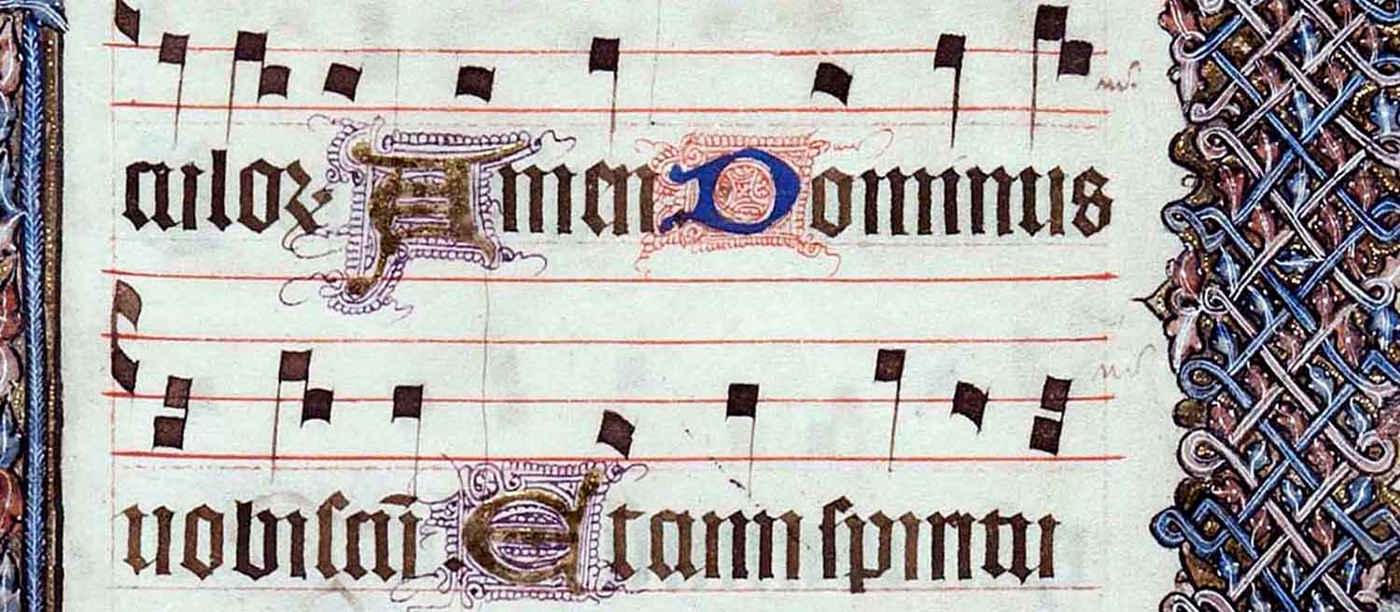 culoꝝ Amen Dominus
uobiscū. Et cum spiritu